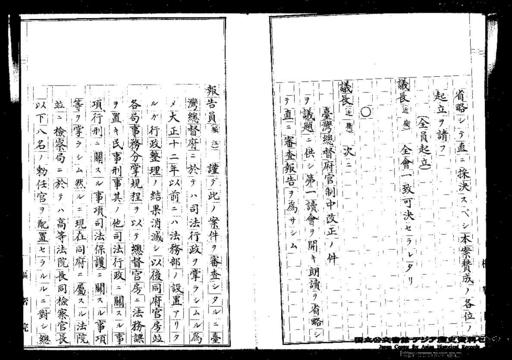 省略シテ直ニ採決スベシ本案賛成ノ各位ノ
起立ヲ請フ
(全員起立)
議長 全会一致可決セラレタリ
○
議長 次ニ
臺灣總督府官制中改正ノ件
ヲ議題ニ供シ第一讀會ヲ開キ朗讀ヲ省略シ
テ直ニ審査報告ヲ為サシム
報告員 謹テ此ノ案件ヲ審査シタルニ臺
灣總督府ニ於テハ司法行政ヲ掌ラシムル為
メ大正十二年以前ニハ法務部ノ設置アリタ
ルガ行政整理ノ結果消滅シ以後同府官房並
各局事務分掌規程ヲ以テ總督官房ニ法務課
ヲ置キ民事刑事其ノ他司法行政ニ關スル事
項、行刑ニ關スル事項司法保護ニ關スル事項
等ヲ掌ラシム然ルニ現在同府ニ屬スル法院
並ニ檢察局ニ於テハ高等法院長同檢察官長
以下八名ノ勅任官ヲ配置セラルルニ對シ總
樞密院
国立公文書館 アジア歴史資料センター
Japan Center for Asian Historical Records